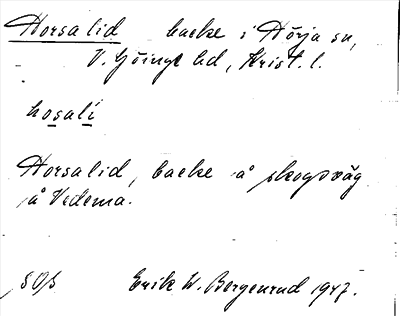 Horsalid backe i Hörja sn,
V. Göinge hd, Krist. l.
hosali
Horsalid, backe å skogsväg
å Vedema.
SOB Erik W. Bergenrud 1947.